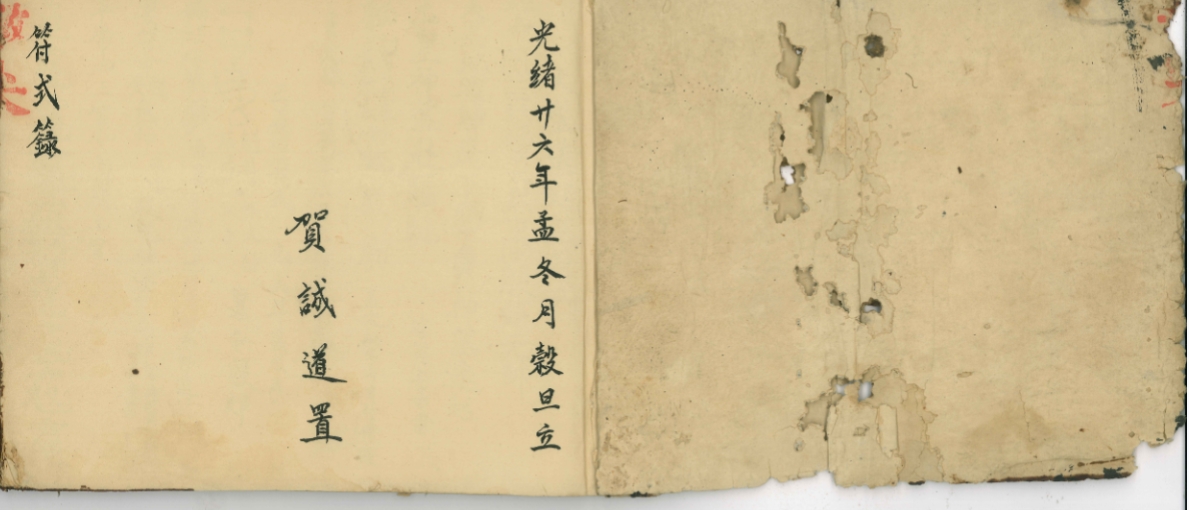 光緒廿六年孟冬月榖旦立
賀誠道置
符式籙